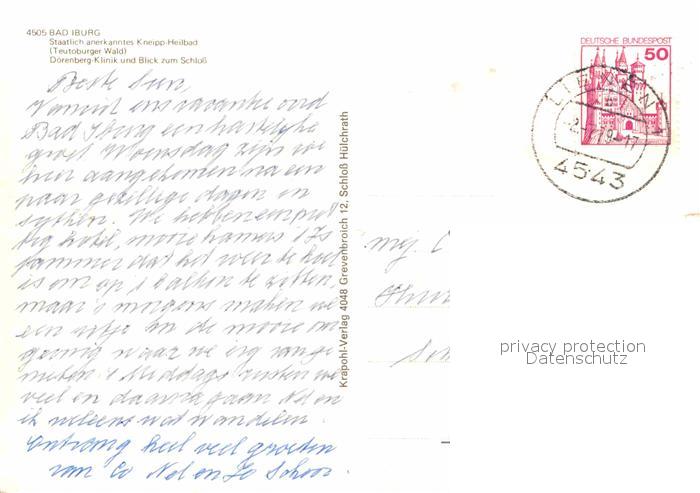 4505 BAD IBURG
Staatlich anerkanntes Kneipp-Heilbad
(Teutoburger Wald)
Dörenberg-Klinik und Blick zum Schloß
Beste
Vanuit ons vacantie oord
Bad Iburg een hartelijke
groet Woensdag zijn we
hier aangekomen na een
paar gezellige dagen in
We hebben een
hotel, mooie kamers 't Is
jammer dat het weer te koel
is om op 't balkon te zitten,
maar 's morgens maken we
een ritje in de mooie om
geving waar we erg van ge
nieten 's Middags rusten we
veel en daarna gaan en
ik weleens wat wandelen.
Ontvang heel veel groeten
van Co Nel en Jo Schoor
Krapohl-Verlag 4048 Grevenbroich 12, Schloß Hülchrath
DEUTSCHE BUNDESPOST
50
LIENEN
-2.-7.79-17
4543
mej.
privacy protection
Datenschutz